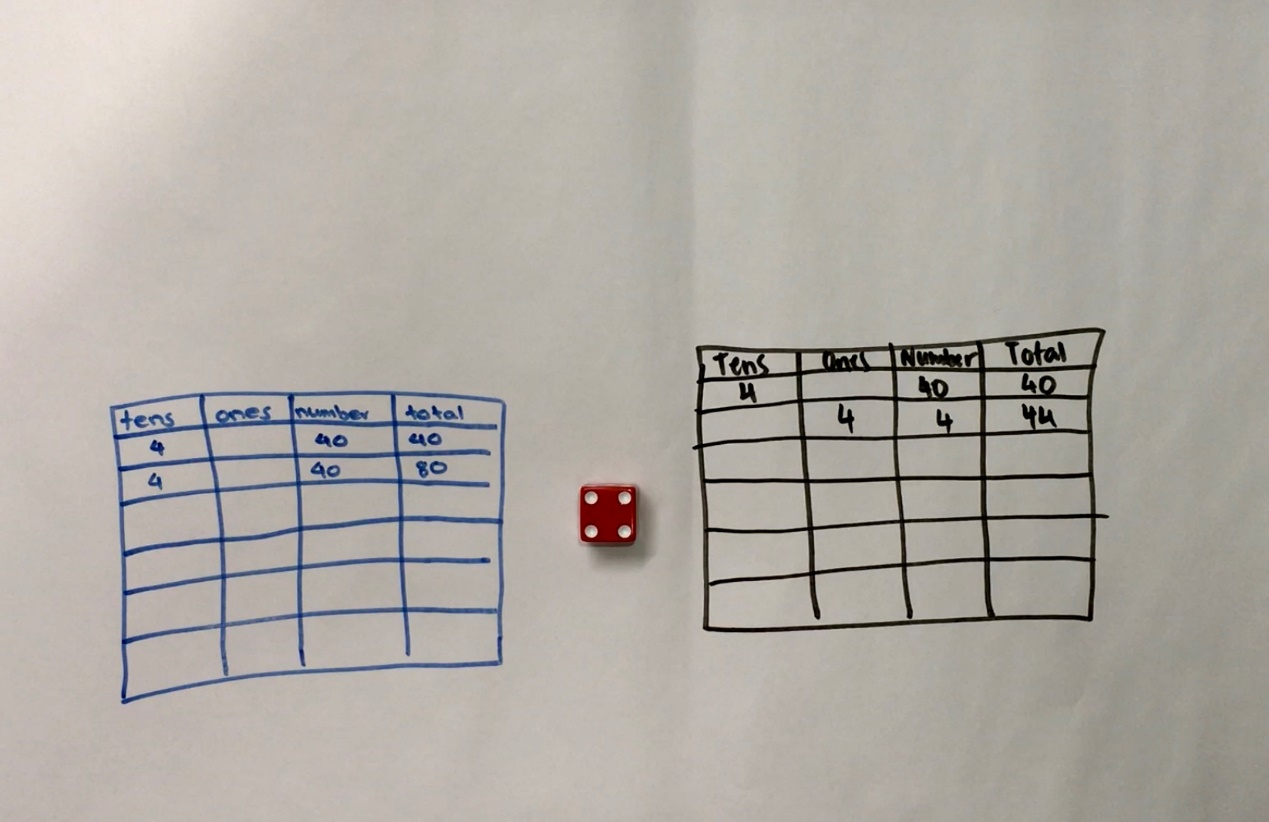 tens ones number total
4 40 40
4 40 80
Tens Ones Number Total
4 40 40
4 4 44